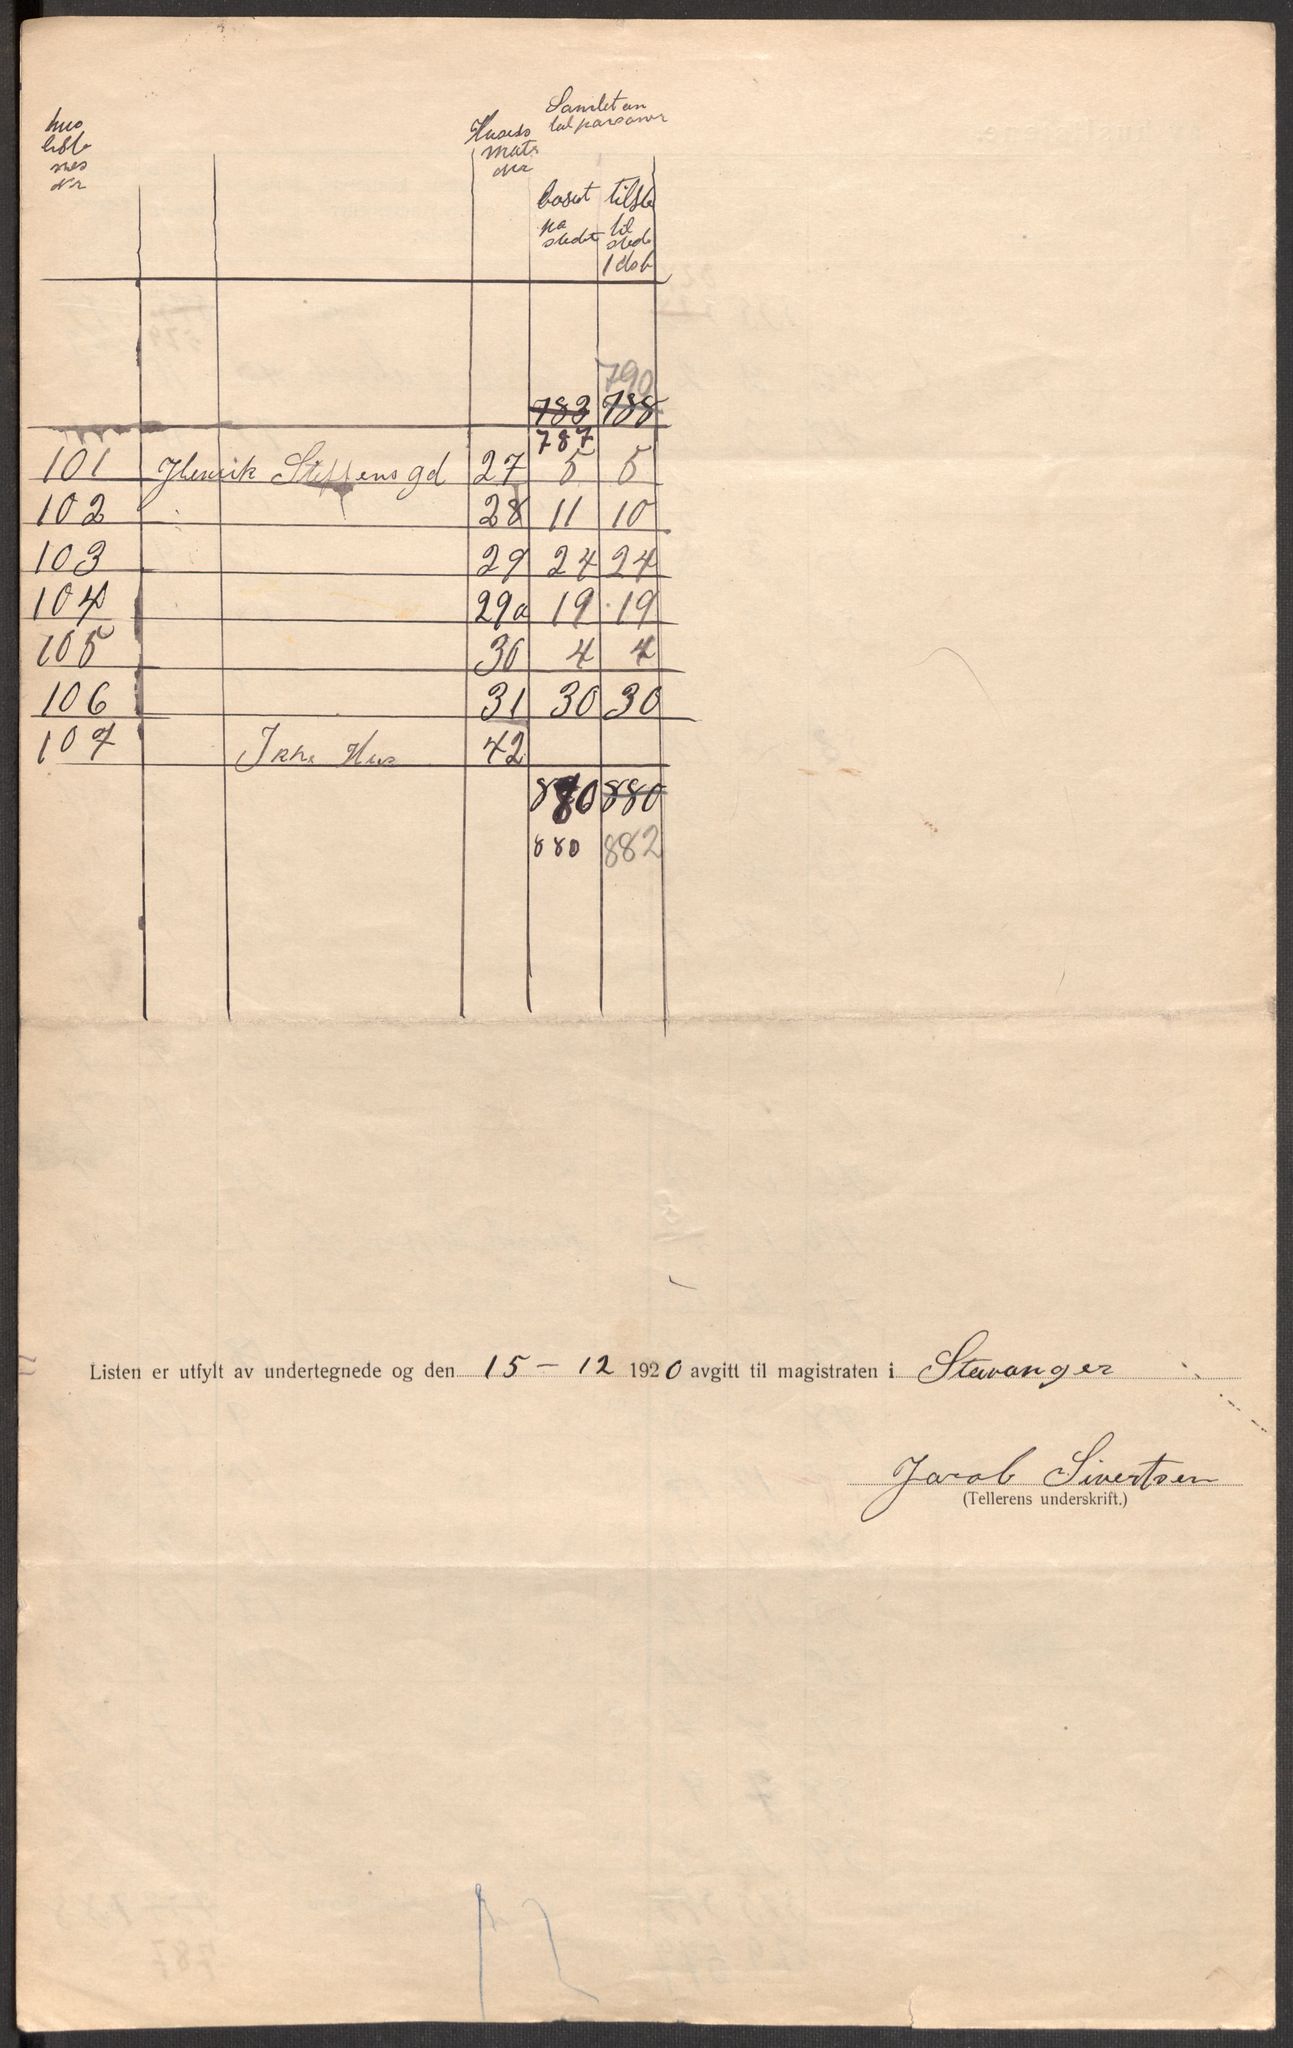 Samlet an
tal personer
Hus
liste
nes
Nr
Husets
matr
Nr
boset
på
stedet
tilste
til
stede
1 deb
790
783 788
787
101 Henrik Steffens gd 27 5 5
102 28 11 10
103 29 24 24
104 29a 19 19
105 30 4 4
106 31 30 30
107 Ikke Hus 42
880
880 882
Listen er utfylt av undertegnede og den 15 - 12 1920 avgitt til magistraten i Stavanger
Jacob Sivertsen
(Tellerens underskrift.)